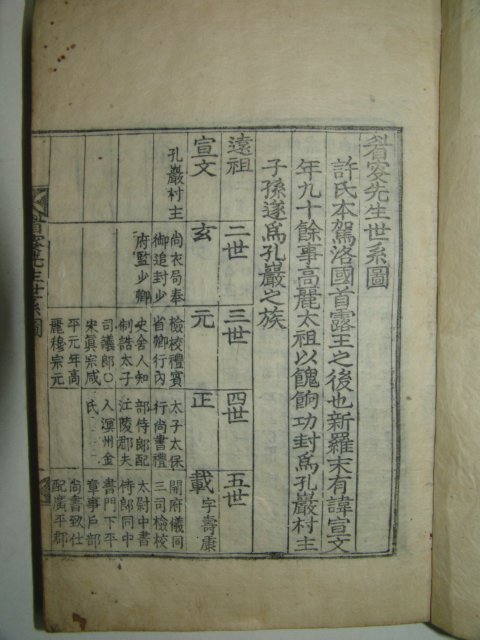 省窩先生世系圖
許氏本駕洛國首露王之後也新羅末有諱宣文
年九十餘事高麗太祖以餽餉功封爲孔巖村主
子孫遂爲孔巖之族
遠祖
宣文
孔巖村主
二世
玄
尚衣局奉
御追封少
府監少卿
三世
元
檢校禮賓
省卿行內
史舍人知
制誥太子
司議郎○
宋眞宗咸
平元年高
麗穆宗元
四世
正
太子太保
行尚書禮
部侍郎配
江陵郡夫
人溟州金
氏
五世
載
字壽康
開府儀同
三司檢校
太尉中書
侍郎同中
書門下平
章事戶部
尚書致仕
配廣平郡
先生世系圖